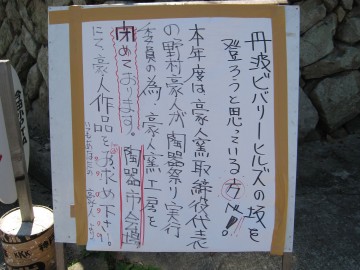 丹波ビバリーヒルズの坂を
登ろうと思っている方へ。
本年度は豪人窯取締役代表
の「野村豪人が陶器祭り実行
委員の為、豪人窯工房を
閉めております。陶器市会場
にて豪人作品をお求め下さい。
豪人より